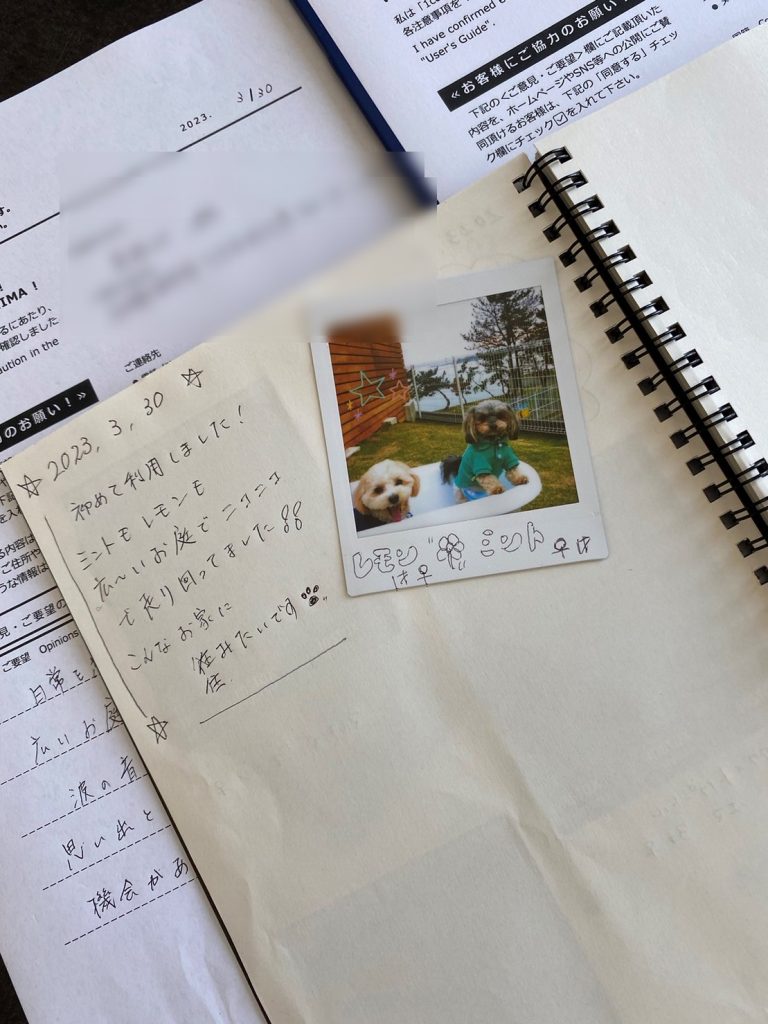 2023. 3/30
私は「1c
各注意事項を
I have confirmed e
"User's Guide".
≪お客様にご協力のお願い
下記の<ご意見・ご要望>欄にご記載頂いた
内容を、ホームページやSNS等への公開にご賛
同頂けるお客様は、下記の「同意する」チェッ
ク欄にチェック☑を入れて下さい。
IMA !
るにあたり、
確認しました
ution in the
ご連絡先
のお願い！≫
☆ 2023. 3. 30 ☆
初めて利用しました！
ミントモ レモンモ
広〜いお庭でニコニコ
で走り回ってました
こんなお家に
住みたいです
住
☆
レモン ミント
は♀ ♀は
る内容は
ご住所や
うな情報は
見・ご要望の
ご要望 Opinions
日常を
広いお庭
波の音
思い出と
機会があ